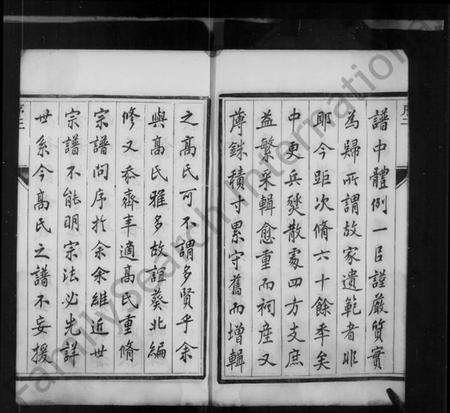 譜中體例一臣謹嚴質實
為歸所謂故家遺範者非
耶今距次脩六十餘年矣
中更兵燹散處四方支庶
益繁采輯愈重而祠產又
薄銖積寸累守舊而增輯
之高氏可不謂多賢乎余
與高氏雅多故誼葵北編
修又忝齊年適高氏重脩
宗譜問序於余余維近世
宗譜不能明宗法必先詳
世系今高氏之譜不妄援
序二
序三
FamilySearch International